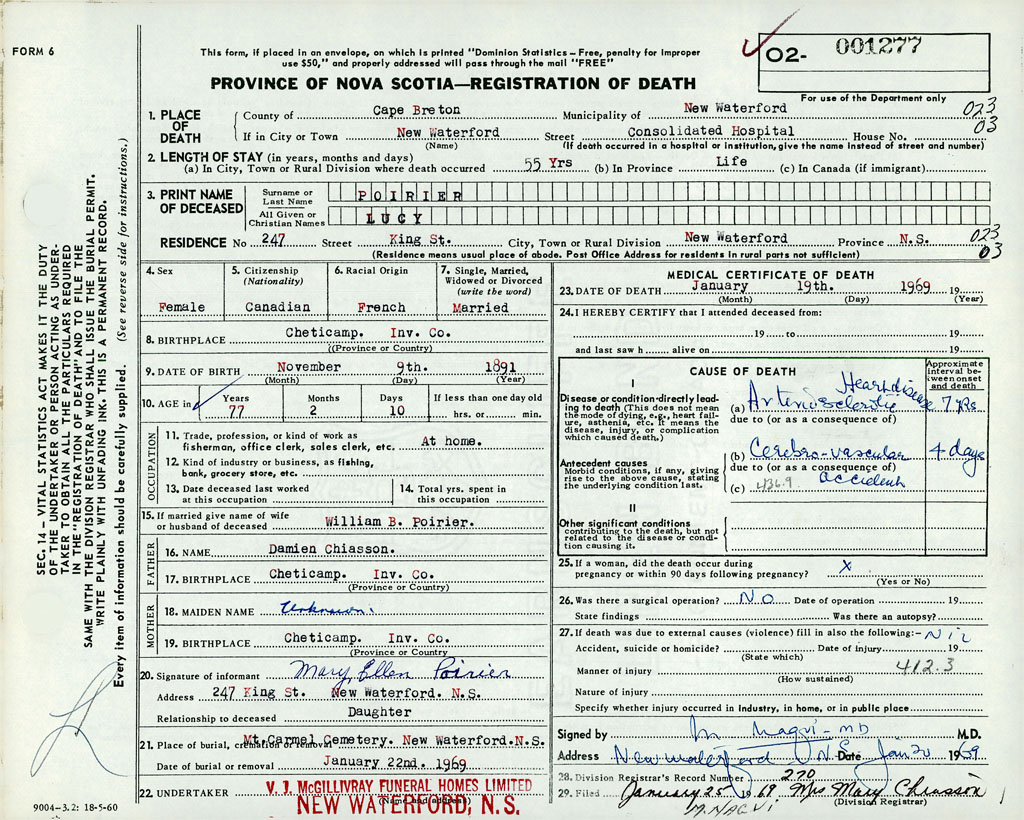 FORM 6
This form, if placed in an envelope, on which is printed "Dominion Statistics – Free, penalty for improper
use $50," and properly addressed will pass through the mail "FREE"
02- 001277
PROVINCE OF NOVA SCOTIA—REGISTRATION OF DEATH
For use of the Department only
1. PLACE OF DEATH
County of Cape Breton Municipality of New Waterford 023
If in City or Town New Waterford Street Consolidated Hospital House No. 03
(Name) (If death occurred in a hospital or institution, give the name instead of street and number)
2. LENGTH OF STAY (in years, months and days)
(a) In City, Town or Rural Division where death occurred 55 Yrs (b) In Province Life (c) In Canada (if immigrant)
3. PRINT NAME OF DECEASED
Surname or Last Name POIRIER
All Given or Christian Names LUCY
RESIDENCE No 247 Street King St. City, Town or Rural Division New Waterford Province N.S. 023
(Residence means usual place of abode. Post Office Address for residents in rural parts not sufficient) 03
4. Sex Female
5. Citizenship (Nationality) Canadian
6. Racial Origin French
7. Single, Married, Widowed or Divorced (write the word) Married
8. BIRTHPLACE Cheticamp. Inv. Co.
((Province or Country)
9. DATE OF BIRTH November 9th. 1891
(Month) (Day) (Year)
10. AGE in Years 77 Months 2 Days 10 If less than one day old hrs. or min.
OCCUPATION
11. Trade, profession, or kind of work as
fisherman, office clerk, sales clerk, etc. At home.
12. Kind of industry or business, as fishing,
bank, grocery store, etc.
13. Date deceased last worked at this occupation
14. Total yrs. spent in this occupation
15. If married give name of wife
or husband of deceased William B. Poirier.
FATHER
16. NAME Damien Chiasson.
17. BIRTHPLACE Cheticamp. Inv. Co.
(Province or Country)
MOTHER
18. MAIDEN NAME Unknown.
19. BIRTHPLACE Cheticamp. Inv. Co.
(Province or Country
20. Signature of informant Mary Ellen Poirier
Address 247 King St. New Waterford. N.S.
Relationship to deceased Daughter
21. Place of burial, cremation or removal Mt. Carmel Cemetery. New Waterford.N.S.
Date of burial or removal January 22nd. 1969
22. UNDERTAKER V. J. McGILLIVRAY FUNERAL HOMES LIMITED
(Name and address) NEW WATERFORD, N.S.
MEDICAL CERTIFICATE OF DEATH
23. DATE OF DEATH January 19th. 1969 19
(Month) (Day) (Year)
24. I HEREBY CERTIFY that I attended deceased from:
19 to 19
and last saw h alive on 19
CAUSE OF DEATH
Approximate interval between onset and death
I
Disease or condition directly leading to death (This does not mean the mode of dying, e.g., heart failure, asthenia, etc. It means the disease, injury, or complication which caused death.)
(a) Arteriosclerotic Heart disease 7 yrs
due to (or as a consequence of)
Antecedent causes
Morbid conditions, if any, giving rise to the above cause, stating the underlying condition last.
(b) Cerebro-vascular accident 4 days
due to (or as a consequence of)
(c) 436.9
II
Other significant conditions
contributing to the death, but not related to the disease or condition causing it.
25. If a woman, did the death occur during
pregnancy or within 90 days following pregnancy? X
(Yes or No)
26. Was there a surgical operation? NO Date of operation 19
State findings Was there an autopsy?
27. If death was due to external causes (violence) fill in also the following:- Nil
Accident, suicide or homicide? Date of injury 19
(State which)
Manner of injury 412.3
(How sustained)
Nature of injury
Specify whether injury occurred in industry, in home, or in public place
Signed by M Naqvi - MD M.D.
Address New waterford N.S. Date Jan 20 1969
28. Division Registrar's Record Number 270
29. Filed January 25 1969 Mrs Mary Chiasson
(Division Registrar)
M. NAQVI
SEC. 14 – VITAL STATISTICS ACT MAKES IT THE DUTY
OF THE UNDERTAKER OR PERSON ACTING AS UNDER-
TAKER TO OBTAIN ALL THE PARTICULARS REQUIRED
IN THE "REGISTRATION OF DEATH" AND TO FILE THE
SAME WITH THE DIVISION REGISTRAR WHO SHALL ISSUE THE BURIAL PERMIT.
WRITE PLAINLY WITH UNFADING INK. THIS IS A PERMANENT RECORD.
Every item of information should be carefully supplied. (See reverse side for instructions.)
9004-3.2: 18-5-60